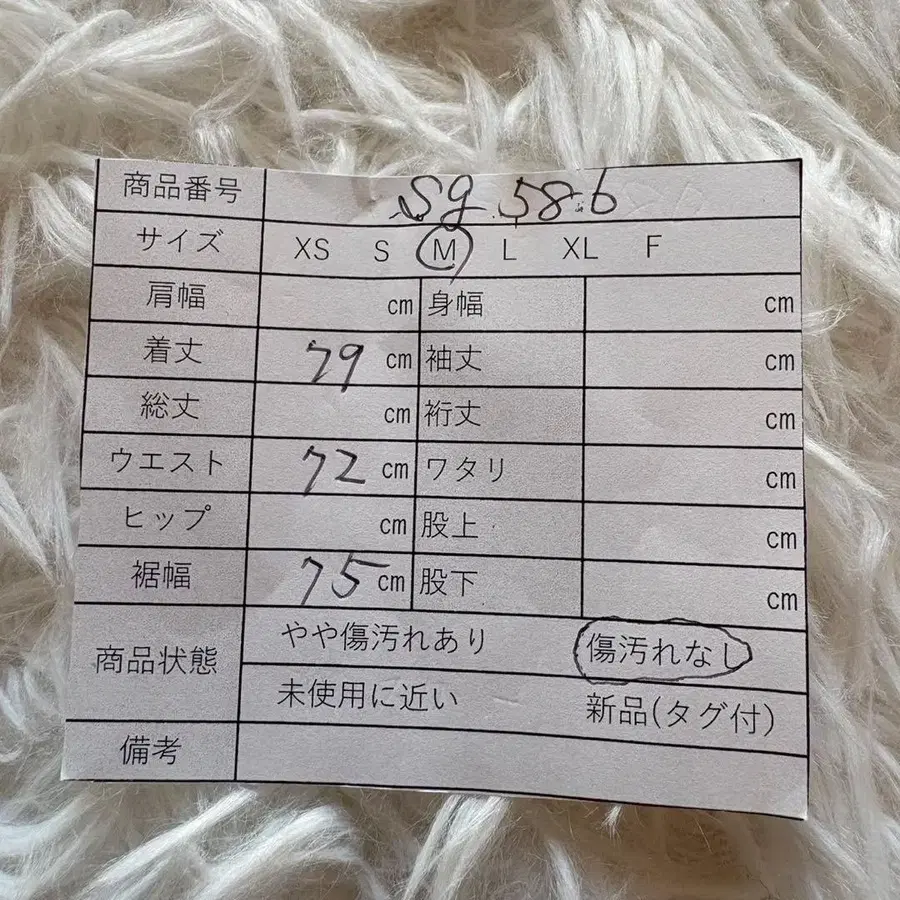 商品番号 Sg 586
サイズ XS S M L XL F
肩幅 cm 身幅 cm
着丈 79 cm 袖丈 cm
総丈 cm 裄丈 cm
ウエスト 72 cm ワタリ cm
ヒップ cm 股上 cm
裾幅 75 cm 股下 cm
商品状態 やや傷汚れあり 傷汚れなし
未使用に近い 新品(タグ付)
備考